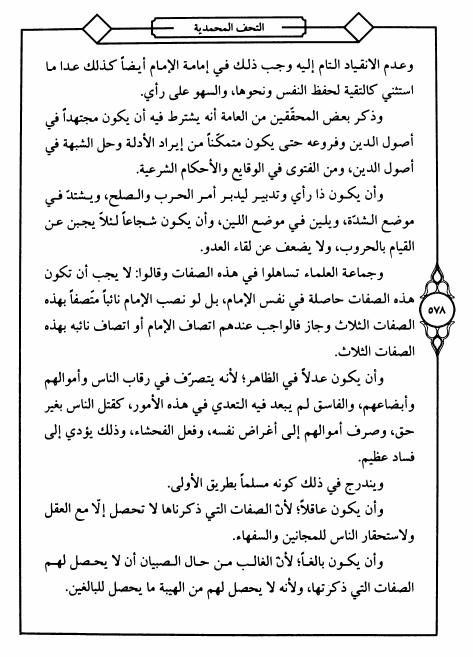 التحف المحمدية
وعدم الانقياد التام إليه وجب ذلك في إمامة الإمام أيضاً كذلك عدا ما
استثني كالتقية لحفظ النفس ونحوها، والسهو على رأي.
وذكر بعض المحققين من العامة أنه يشترط فيه أن يكون مجتهداً في
أصول الدين وفروعه حتى يكون متمكّناً من إيراد الأدلة وحل الشبهة في
أصول الدين، ومن الفتوى في الوقايع والأحكام الشرعية.
وأن يكون ذا رأي وتدبير ليدبر أمر الحرب والصلح، ويشتدّ في
موضع الشدّة، ويلين في موضع اللين، وأن يكون شجاعاً لئلاّ يجبن عن
القيام بالحروب، ولا يضعف عن لقاء العدو.
وجماعة العلماء تساهلوا في هذه الصفات وقالوا: لا يجب أن تكون
هذه الصفات حاصلة في نفس الإمام، بل لو نصب الإمام نائباً متّصفاً بهذه
الصفات الثلاث وجاز فالواجب عندهم اتصاف الإمام أو اتصاف نائبه بهذه
الصفات الثلاث.
٥٧٨
وأن يكون عدلاً في الظاهر؛ لأنه يتصرّف في رقاب الناس وأموالهم
وأبضاعهم، والفاسق لم يبعد فيه التعدي في هذه الأمور، كقتل الناس بغير
حق، وصرف أموالهم إلى أغراض نفسه، وفعل الفحشاء، وذلك يؤدي إلى
فساد عظيم.
ويندرج في ذلك كونه مسلماً بطريق الأولى.
وأن يكون عاقلاً؛ لأنّ الصفات التي ذكرناها لا تحصل إلّا مع العقل
ولاستحقار الناس للمجانين والسفهاء.
وأن يكون بالغاً؛ لأنّ الغالب من حال الصبيان أن لا يحصل لهم
الصفات التي ذكرتها، ولأنه لا يحصل لهم من الهيبة ما يحصل للبالغين.